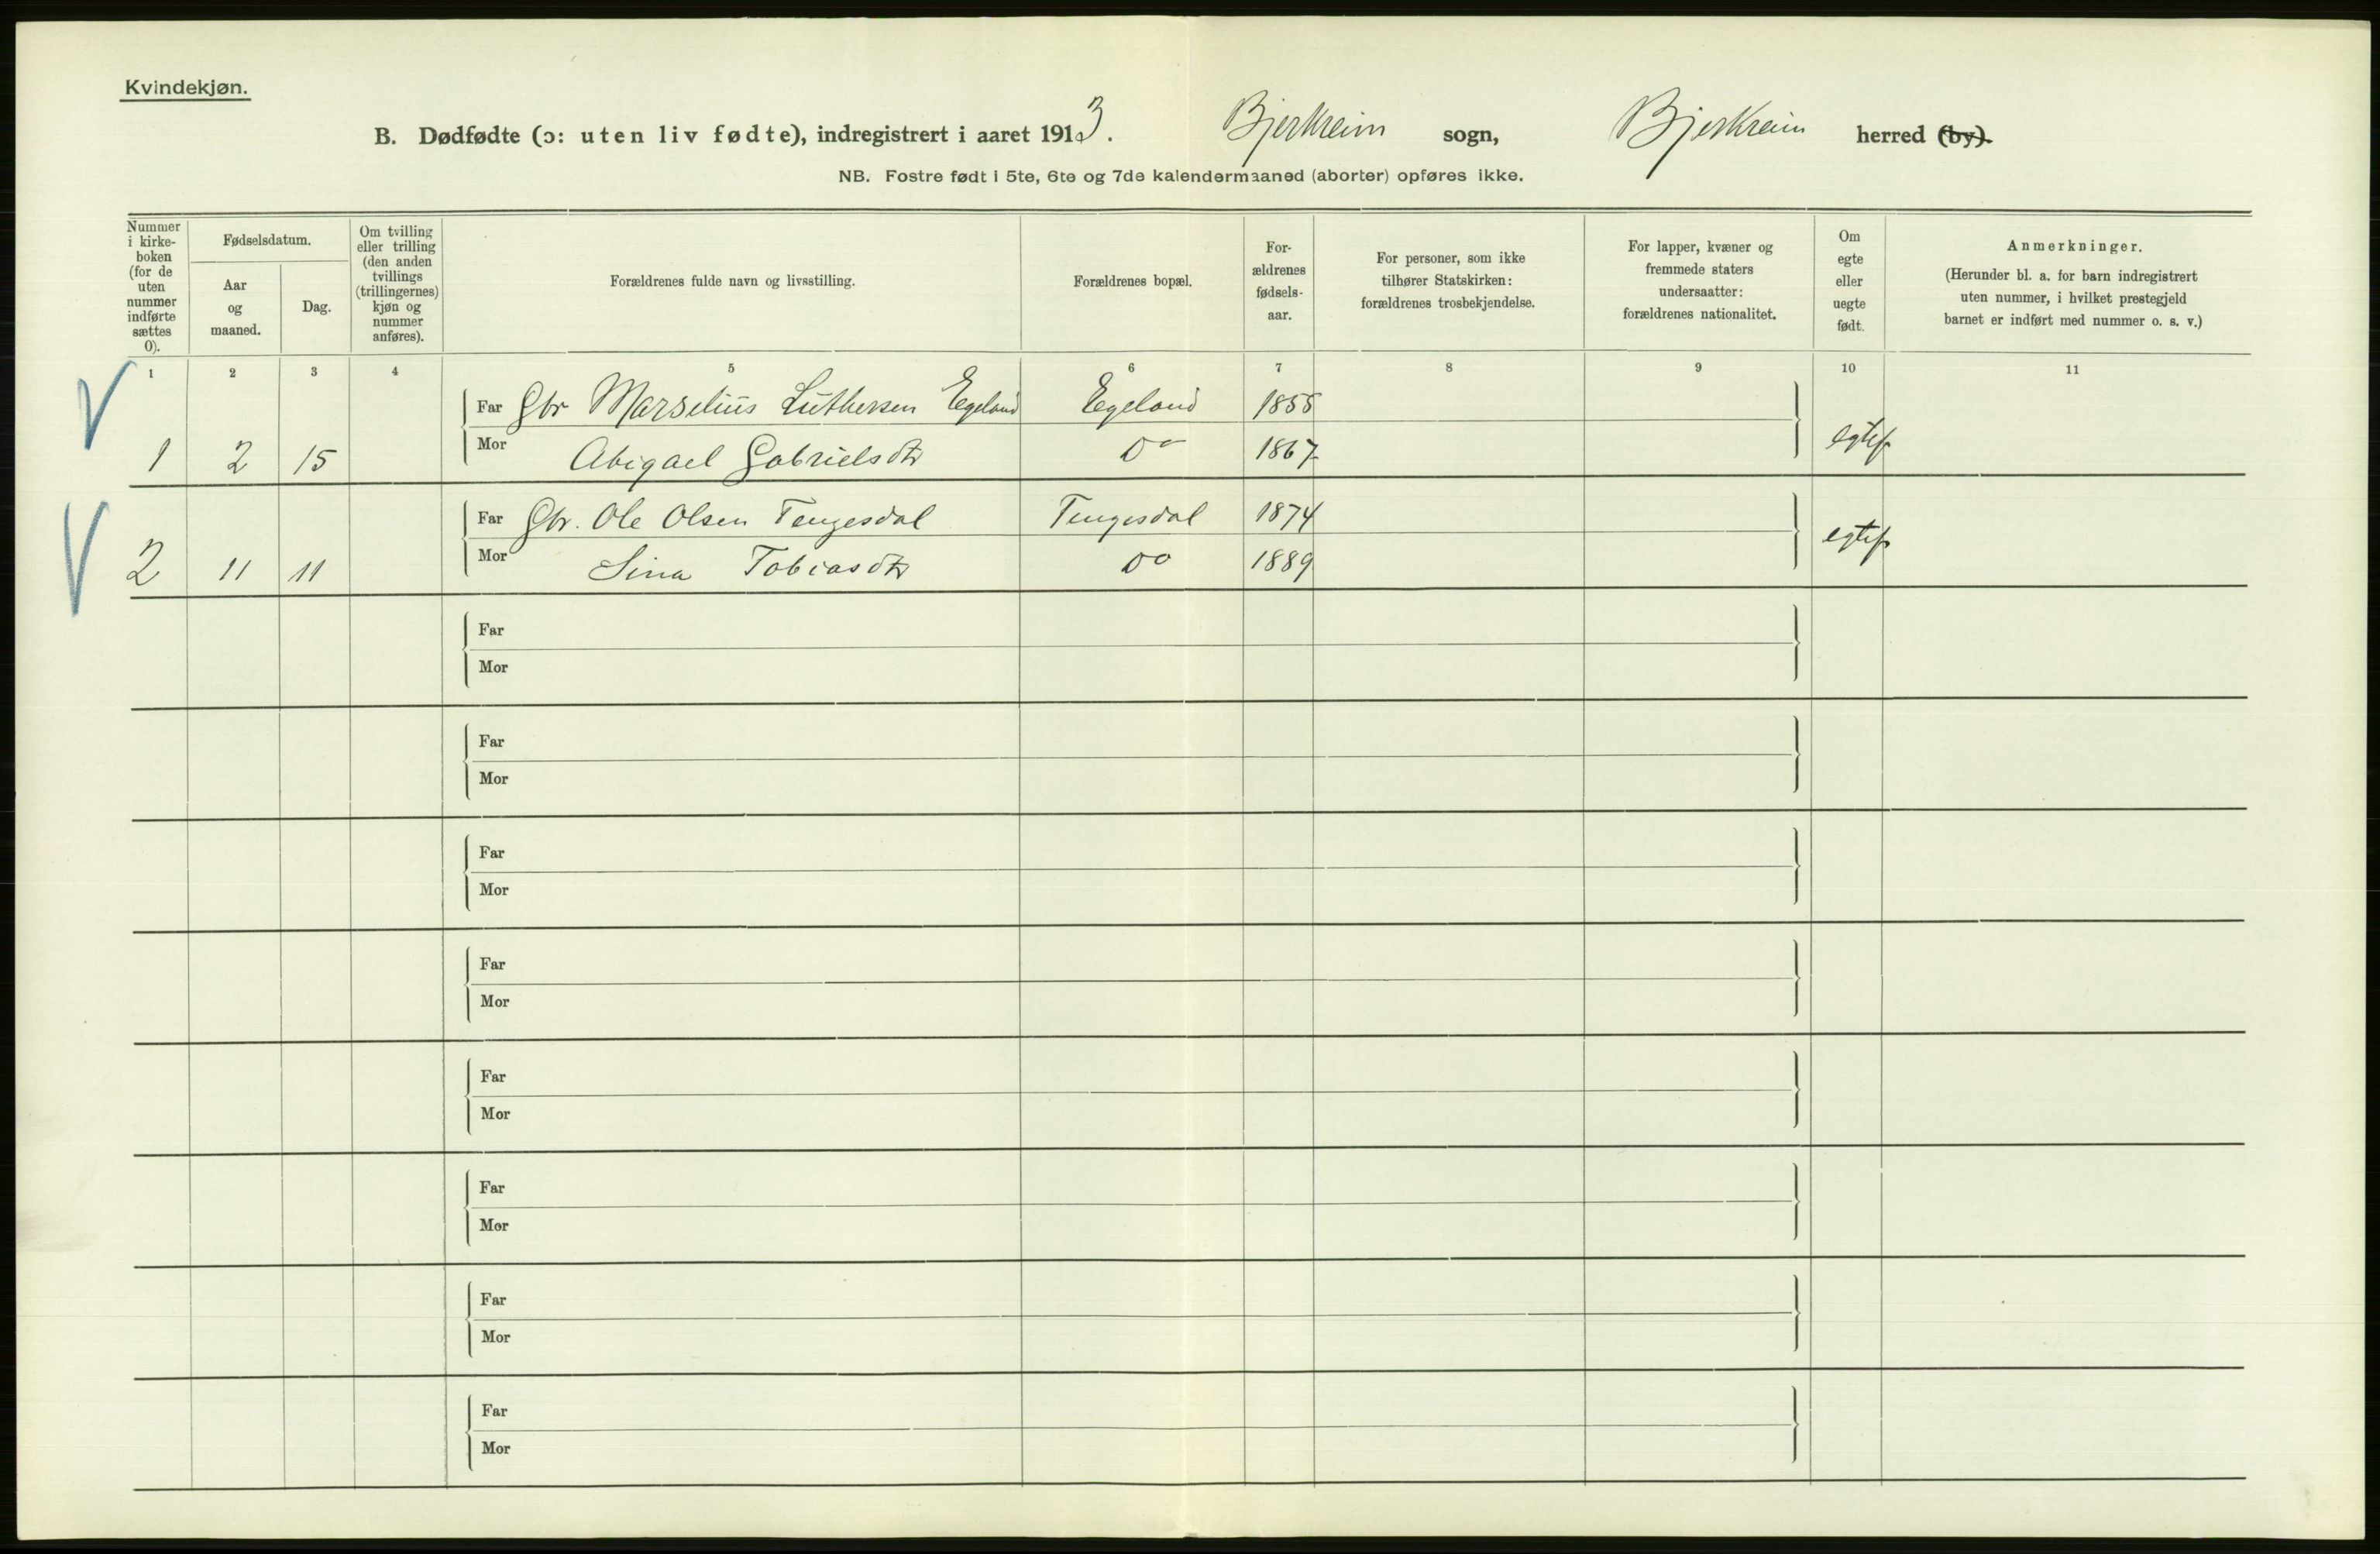 Kvindekjøn.
B. Dødfødte (ɔ: uten liv fødte), indregistrert i aaret 1913. Bjerkreim sogn, Bjerkreim herred (by).
NB. Fostre født i 5te, 6te og 7de kalendermaaned (aborter) opføres ikke.
Nummer i kirke- boken (for de uten nummer indførte sættes 0).
Fødselsdatum.
Aar og maaned.
Dag.
Om tvilling eller trilling (den anden tvillings (trillingernes) kjøn og nummer anføres).
Forældrenes fulde navn og livsstilling.
Forældrenes bopæl.
For- ældrenes fødsels- aar.
For personer, som ikke tilhører Statskirken: forældrenes trosbekjendelse.
For lapper, kvæner og fremmede staters undersaatter: forældrenes nationalitet.
Om egte eller uegte født.
Anmerkninger.
(Herunder bl. a. for barn indregistrert uten nummer, i hvilket prestegjeld barnet er indført med nummer o. s. v.)
1 2 3 4 5 6 7 8 9 10 11
Far Gbr Marselius Luthersen Egeland Egeland 1855
1 2 15 Mor Abigael Gabrielsdtr Do 1867 egtef
Far Gbr. Ole Olsen Tengesdal Tengesdal 1874
2 11 11 Mor Sina Tobiasdtr Do 1889 egtef
Far
Mor
Far
Mor
Far
Mor
Far
Mor
Far
Mor
Far
Mor
Far
Mor
Far
Mor